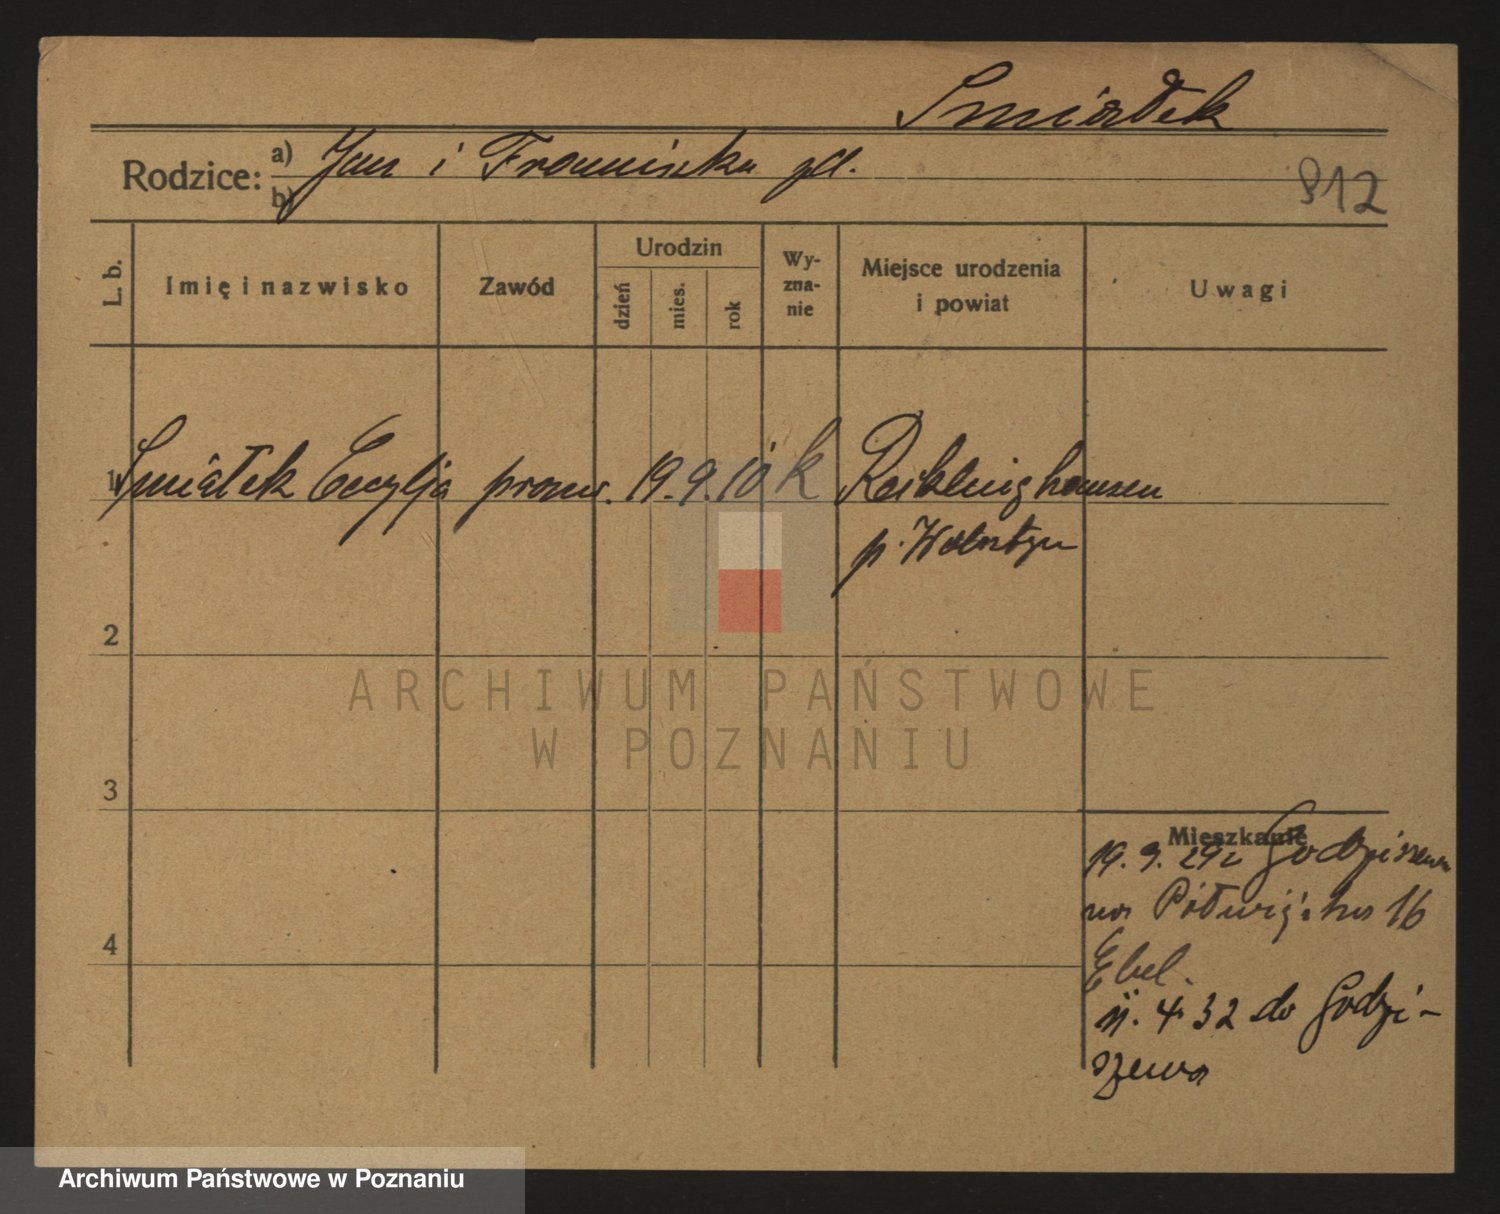 Śmiałek
Rodzice: a) Jan i Franciszka
b)
912
L. b.
Imię i nazwisko
Zawód
Urodzin
dzień
mies.
rok
Wy-
zna-
nie
Miejsce urodzenia
i powiat
Uwagi
1 Śmiałek Cecylja prac. 19. 9. 10 k Recklinghausen
p. Wolsztyn
2
3
4
Mieszkanie
19. 9. 29 z Godziszewa
na Półwiejska 16
4 32 do Godzi-
szewa
ARCHIWUM PAŃSTWOWE
W POZNANIU
Archiwum Państwowe w Poznaniu